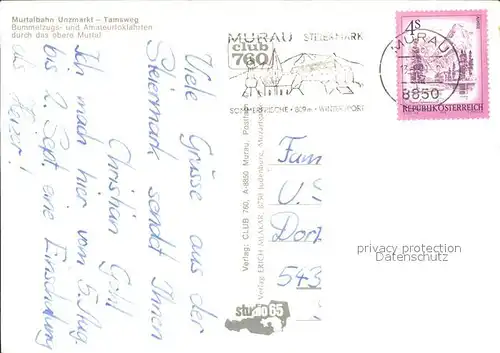 Murtalbahn Unzmarkt - Tamsweg
Bummelzugs- und Amateurlokfahrten
durch das obere Murtal
Viele Grüsse aus der
Steiermark sendet Ihnen
Christian
Ich mach hier vom 5. Aug.
bis 2. Sept. eine Einschulung
als Heizer!
MURAU STEIERMARK
club
760
SOMMERFRISCHE · 809m · WINTERSPORT
MURAU
8850
4S
REPUBLIK ÖSTERREICH
Verlag: CLUB 760, A-8850 Murau, Postfach
Verlag ERICH MLAKAR, 8750 Judenburg,
studio 65
Fam
U.
Dorf
543
privacy protection
Datenschutz